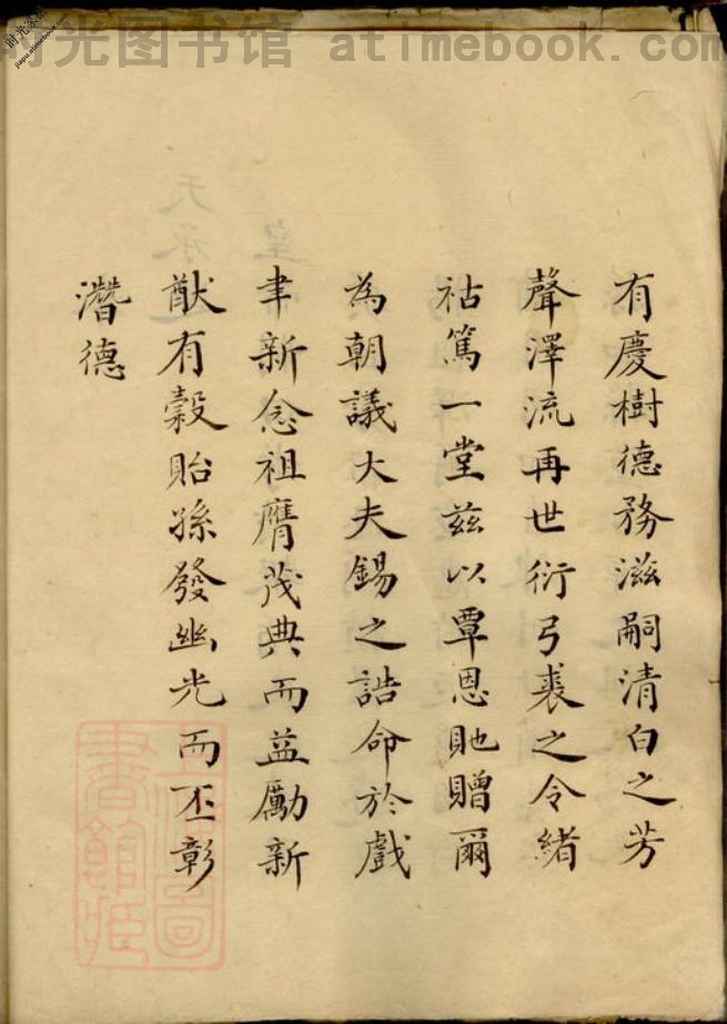 时光图书馆 atimebook.com
有慶樹德務滋嗣清白之芳
聲澤流再世衍弓裘之令緒
祜篤一堂兹以覃恩貤贈爾
為朝議大夫錫之誥命於戲
聿新念祖膺茂典而益勵新
猷有穀貽孫發幽光而丕彰
潛德